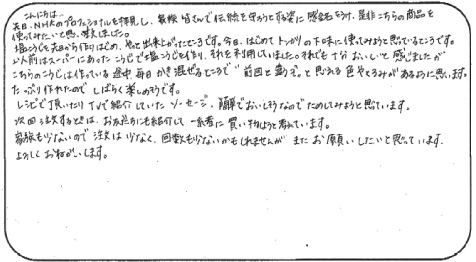 こんにちは。
先日、NHKのプロフェッショナルを拝見し、家族皆さんで伝統を守ろうとする姿に感銘をうけ、是非こちらの商品を
使ってみたいと思い、購入しました。
塩こうじを先日から作りはじめ、やっと出来上がったところです。今日、はじめてトンカツの下味に使ってみようと思っているところです。
以前はスーパーにあったこうじで塩こうじを作り、それを利用していました。それでも十分おいしいと感じましたが
こちらのこうじは作っている途中毎日かき混ぜるところで"前回と違うぞ"と思える色やとろみがあるように思います。
たっぷり作れたので しばらく楽しめそうです。
レシピで頂いたり TVで紹介していた ソーセージ、簡単でおいしそうなので ためしてみようと思っています。
次回 注文するときは、お友達にも紹介して 一緒に 買い物しようと考えています。
家族も少ないので 注文は 少なく、回数も少ないかもしれませんが またお願いしたいと思っています。
よろしくお願いします。